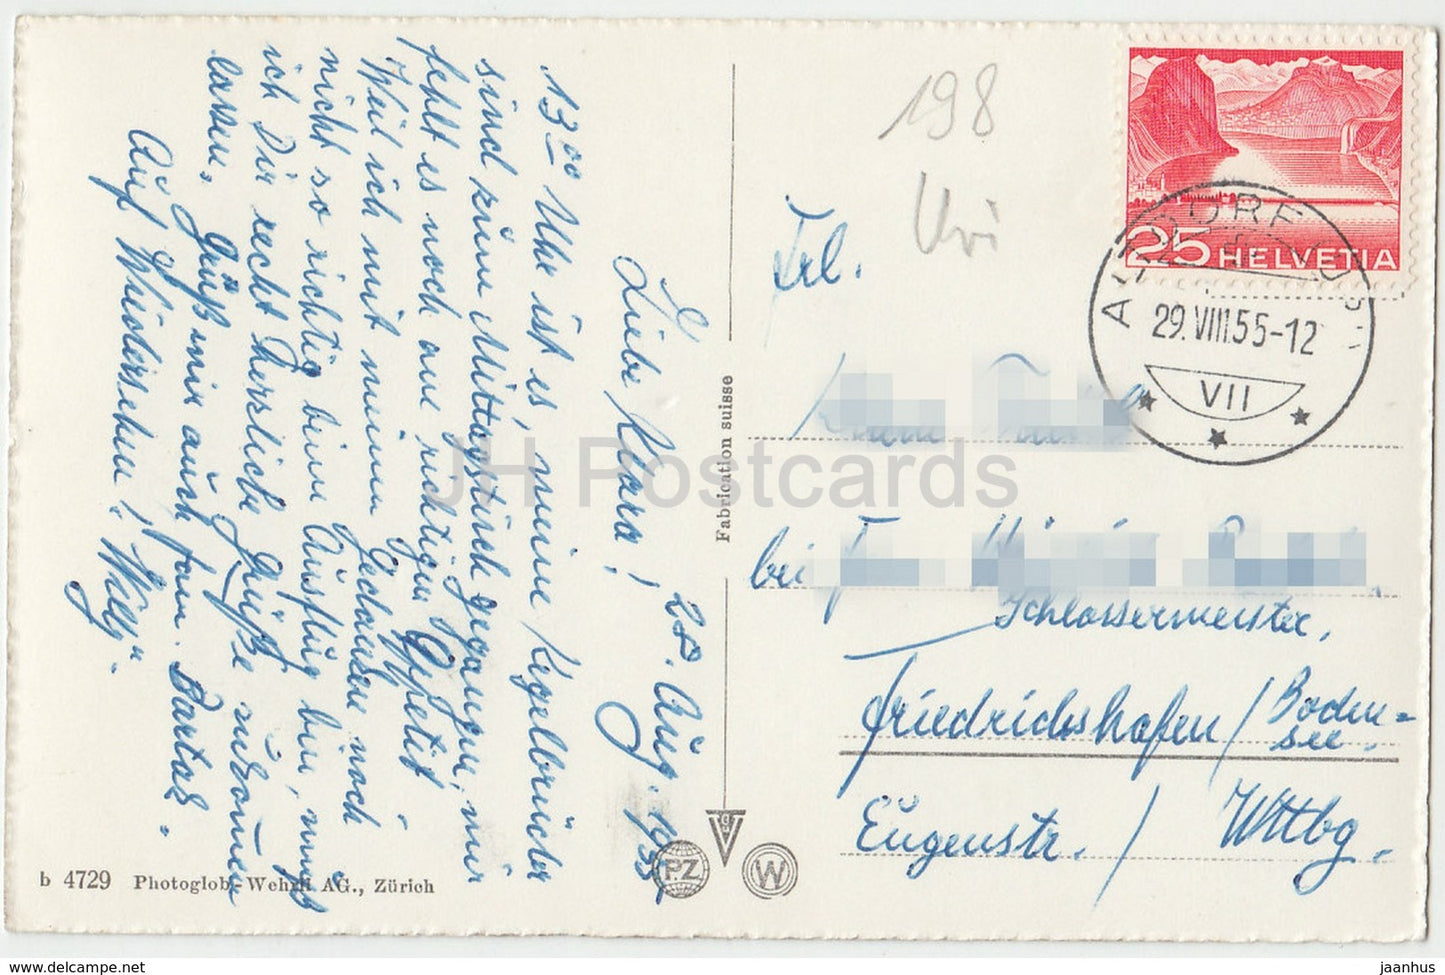 28. Aug. 1955
Liebe Klara!
13.00 Uhr ist es, meine Kegelbrüder
sind zum Mittagstisch gegangen, mir
fehlt es noch am richtigen Appetit
Weil ich mit meinen Gedanken noch
nicht so richtig beim Ausflug bin, muß
ich Dir recht herzliche Grüße zukommen
lassen. Grüß mir auch Fam.
Auf Wiedersehen! Willy.
198
Uri
Frl.
bei
Schlossermeister,
Friedrichshafen / Boden=
see.
Eugenstr. / Wttbg.
25 HELVETIA
ALTDORF
29.VIII.55-12
VII
Fabrication suisse
b 4729 Photoglob-Wehrli AG., Zürich
P.Z
W
JH Postcards
www.delcampe.net
jaanhus